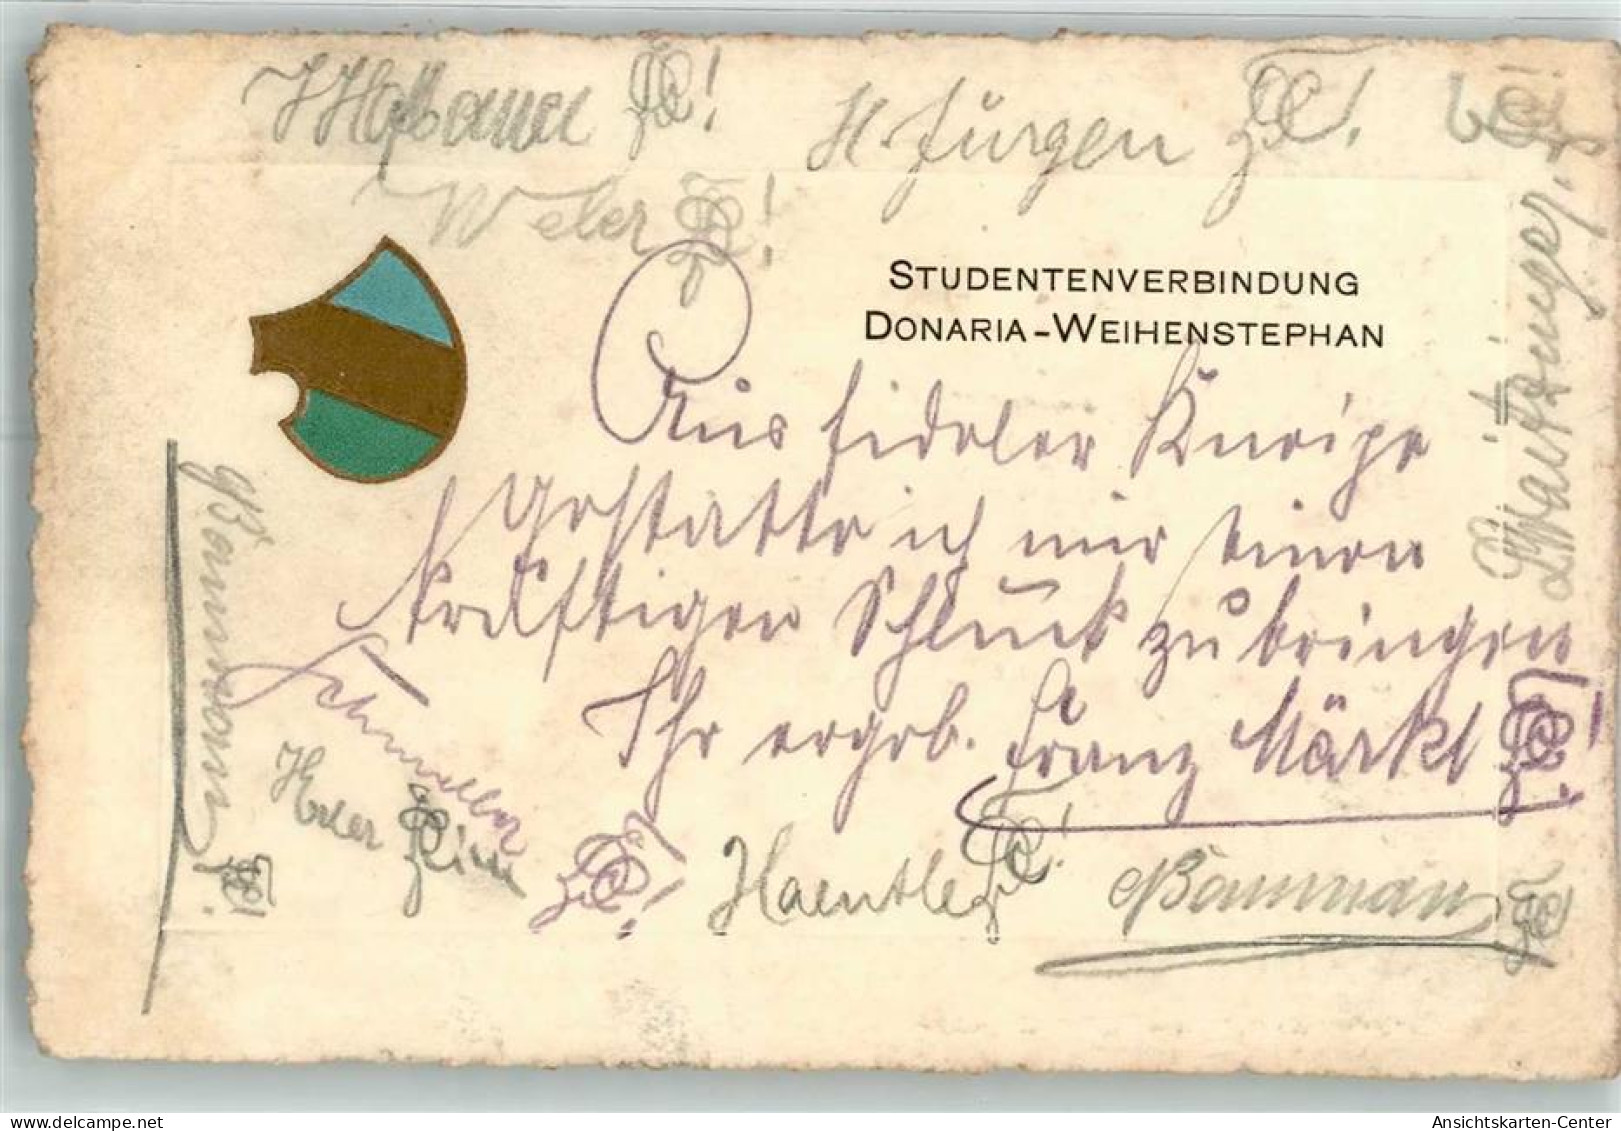 Hofbauer
H. Jürgen
Weber
STUDENTENVERBINDUNG
DONARIA-WEIHENSTEPHAN
Aus fideler Kneipe
gestatte ich mir einen
kräftigen Schluck zu bringen
Ihr ergeb. Franz Märkl
Waitzinger
Baumann
Schmeller
Haentle
Baumann
Ansichtskarten-Center